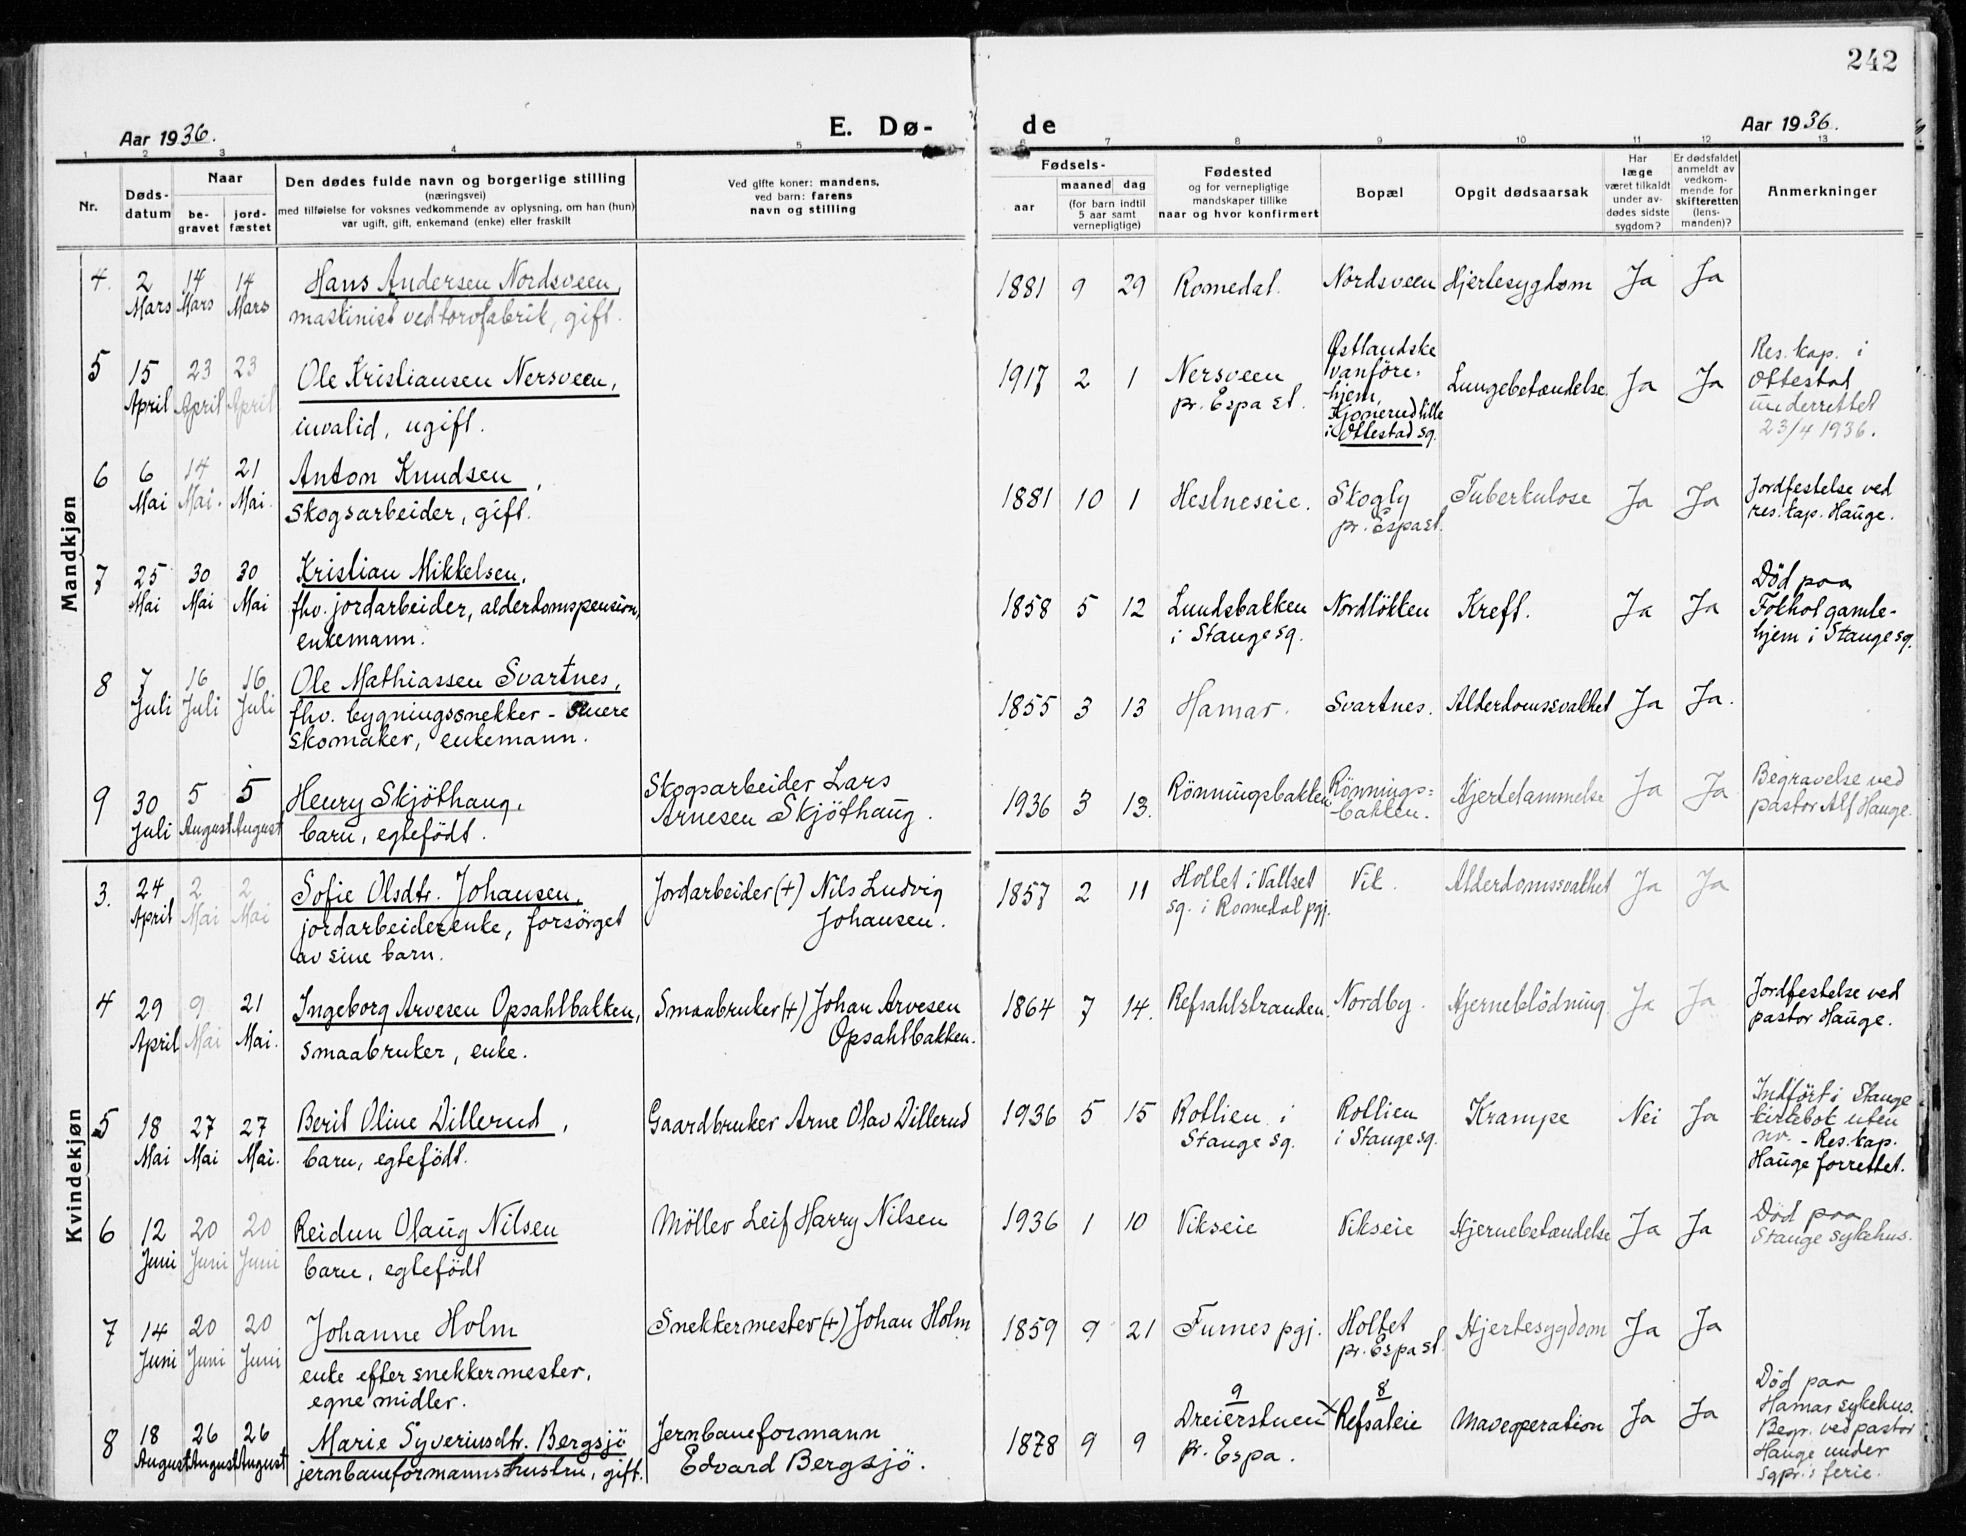 242
Aar 1936.
E. Dø-
de
Aar 1936.
1 2 3 4 5 6 7 8 9 10 11 12 13
Nr.
Døds-
datum
Naar
be-
gravet
jord-
fæstet
Den dødes fulde navn og borgerlige stilling
(næringsvei)
med tilføielse for voksnes vedkommende av oplysning, om han (hun)
var ugift, gift, enkemand (enke) eller fraskilt
Ved gifte koner: mandens,
ved barn: farens
navn og stilling
Fødsels-
aar
maaned dag
(for barn indtil
5 aar samt
vernepligtige)
Fødested
og for vernepligtige
mandskaper tillike
naar og hvor konfirmert
Bopæl
Opgit dødsaarsak
Har
læge
været tilkaldt
under av-
dødes sidste
sygdom?
Er dødsfaldet
anmeldt av
vedkom-
mende for
skifteretten
(lens-
manden)?
Anmerkninger
Mandkjøn
4. 2 Mars 14 Mars 14 Mars
Hans Andersen Nordsveen,
maskinist ved torvfabrik, gift.
1881 9 29 Romedal. Nordsveen Hjertesygdom Ja Ja
5 15 April 23 April 23 April
Ole Kristiansen Nersveen,
invalid, ugift.
1917 2 1
Nersveen
pr. Espa st.
Østlandske
vanföre-
hjem,
Kjonerud lille
i Ottestad sg.
Lungebetændelse. Ja Ja
Res. kap. i
Ottestad
underrettet
23/4 1936.
6 6 Mai 14 Mai. 21 Mai.
Anton Knudsen,
skogsarbeider, gift.
1881 10 1 Hestneseie.
Skogly
pr. Espa st.
Tuberkulose Ja Ja
Jordfestelse ved
res. kap. Hauge.
7 25 Mai 30 Mai 30 Mai
Kristian Mikkelsen,
fhv. jordarbeider, alderdomspension,
enkemann.
1858 5 12
Lundsbakken
i Stange sg.
Nordlökken Kreft. Ja Ja
Död paa
Fokhol gamle-
hjem i Stange sg.
8 7 Juli 16 Juli 16 Juli
Ole Mathiassen Svartnes,
fhv. bygningssnekker - senere
skomaker, enkemann.
1855 3 13 Hamar. Svartnes. Alderdomssvakhet Ja Ja.
9 30 Juli 5 August 5 August
Henry Skjöthaug,
barn, egtefödt.
Skogsarbeider Lars
Arnesen Skjöthaug.
1936 3 13. Rönningsbakken
Rönnings-
bakken.
Hjertelammelse Ja Ja
Begravelse ved
pastor Alf Hauge.
Kvindekjøn
3. 24 April 2 Mai 2 Mai
Sofie Olsdtr. Johansen,
jordarbeiderenke, forsörget
av sine barn.
Jordarbeider (+) Nils Ludvig
Johansen.
1857 2 11
Holtet i Vallset
sg. i Romedal pgj.
Vik. Alderdomssvakhet Ja Ja
4 29 April 9 Mai 21 Mai.
Ingeborg Arvesen Opsahlbakken,
smaabruker, enke.
Smaabruker (+) Johan Arvesen
Opsahlbakken.
1864 7 14. Refsahlstranden. Nordby. Hjerneblödning Ja Ja
Jordfestelse ved
pastor Hauge.
5 18 Mai 27 Mai 27 Mai.
Berit Oline Dillerud,
barn, egtefödt.
Gaardbruker Arne Olav Dillerud
1936 5 15
Rotlien i
Stange sg.
Rotlien
i Stange sg.
Krampe Nei Ja
Indfört i Stange
kirkebok uten
nr. - Res. kap.
Hauge forrettet.
6 12 Juni 20 Juni 20 Juni
Reidun Olaug Nilsen
barn, egtefödt
Möller Leif Harry Nilsen
1936 1 10 Vikseie Vikseie Hjernebetændelse Ja Ja
Död paa
Stange sykehus.
7 14 Juni 20 Juni 20 Juni
Johanne Holm
enke efter snekkermester,
egne midler.
Snekkermester (+) Johan Holm
1859 9 21 Furnes pgj.
Holtet
pr. Espa st.
Hjertesygdom Ja Ja
8 18 August 26 August 26 August
Marie Syverinsdtr. Bergsjö
jernbaneformannshustru, gift.
Jernbaneformann
Edvard Bergsjö.
1878 9 9
9
Dreierstuen x
pr. Espa.
8
Refsaleie
Maveoperation Ja Ja
Död paa
Hamar sykehus.
Begr. ved pastor
Hauge under
sgpr.s ferie.